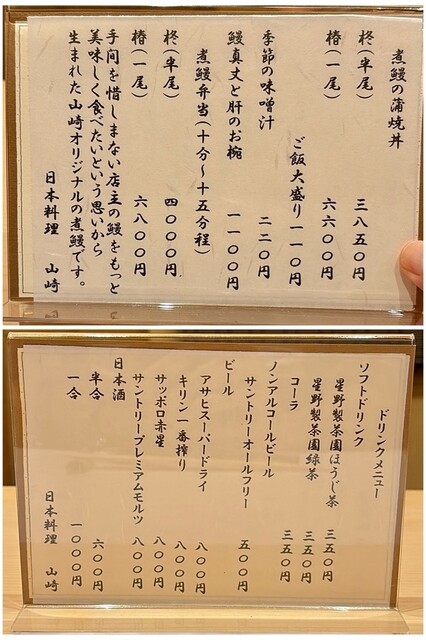 煮鰻の蒲焼丼
柊(半尾) 三八五〇円
椿(一尾) 六六〇〇円
ご飯大盛り 一一〇円
季節の味噌汁 二二〇円
鰻真丈と肝のお椀 一一〇〇円
煮鰻弁当(十分〜十五分程)
柊(半尾) 四〇〇〇円
椿(一尾) 六八〇〇円
手間を惜しまない店主の鰻をもっと
美味しく食べたいという思いから
生まれた山崎オリジナルの煮鰻です。
日本料理 山崎
ドリンクメニュー
ソフトドリンク
星野製茶園ほうじ茶 三五〇円
星野製茶園緑茶 三五〇円
コーラ 三五〇円
ノンアルコールビール
サントリーオールフリー 五〇〇円
ビール
アサヒスーパードライ 八〇〇円
キリン一番搾り 八〇〇円
サッポロ赤星 八〇〇円
サントリープレミアムモルツ 八〇〇円
日本酒
半合 六〇〇円
一合 一〇〇〇円
日本料理 山崎